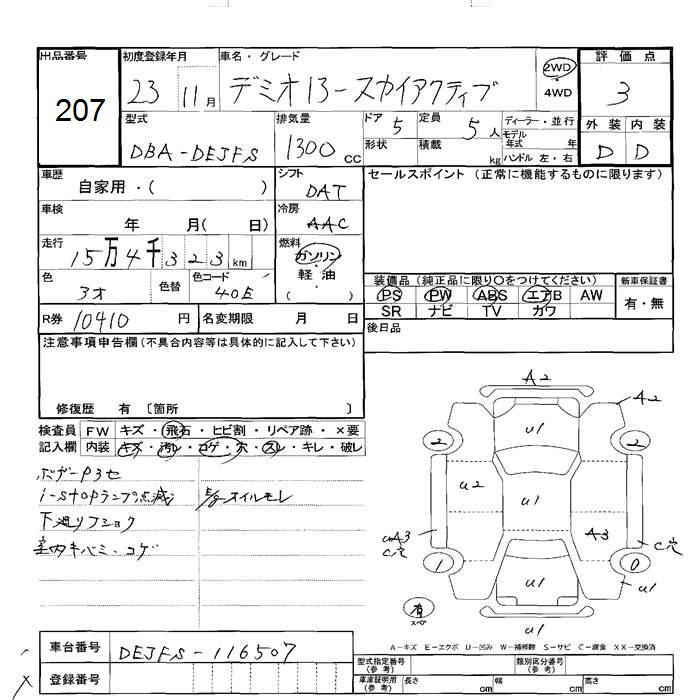 出品番号 初度登録年月 車名・グレード 2WD 評価点
207 23 11月 デミオ 13-スカイアクティブ 4WD 3
型式 排気量 ドア 5 定員 5人 ディーラー・並行 外装 内装
DBA-DEJFS 1300cc 形状 積載 kg モデル年式 年 ハンドル 左・右 D D
車歴 自家用・( ) シフト DAT セールスポイント (正常に機能するものに限ります)
車検 年 月( 日) 冷房 AAC
走行 15万4千323km 燃料 ガソリン
色 色替 色コード 40E 軽・油 ( )
装備品 (純正品に限り○をつけてください) 新車保証書
PS PW ABS エアB AW 有・無
SR ナビ TV カワ
R券 10410円 名変期限 月 日 後日品
注意事項申告欄 (不具合内容等は具体的に記入して下さい)
修復歴 有 〔箇所 〕
検査員 FW キズ・飛石・ヒビ割・リペア跡・×要
記入欄 内装 キズ・汚レ・コゲ・穴・スレ・キレ・破レ
i-stopランプ点滅 オイルモレ
下廻りフショク
室内キバミ・コゲ
A2
A2
U1
2 2
U2 U1 A3
A3
C穴 C穴
1 0
U1 U1
有
スペア
U1
A-キズ E-エクボ U-凹み W-補修跡 S-サビ C-腐食 XX-交換済
車台番号 DEJFS-116507
型式指定番号(参考) 類別区分番号(参考)
登録番号 車庫証明用(参考) 長さ cm 幅 cm 高さ cm